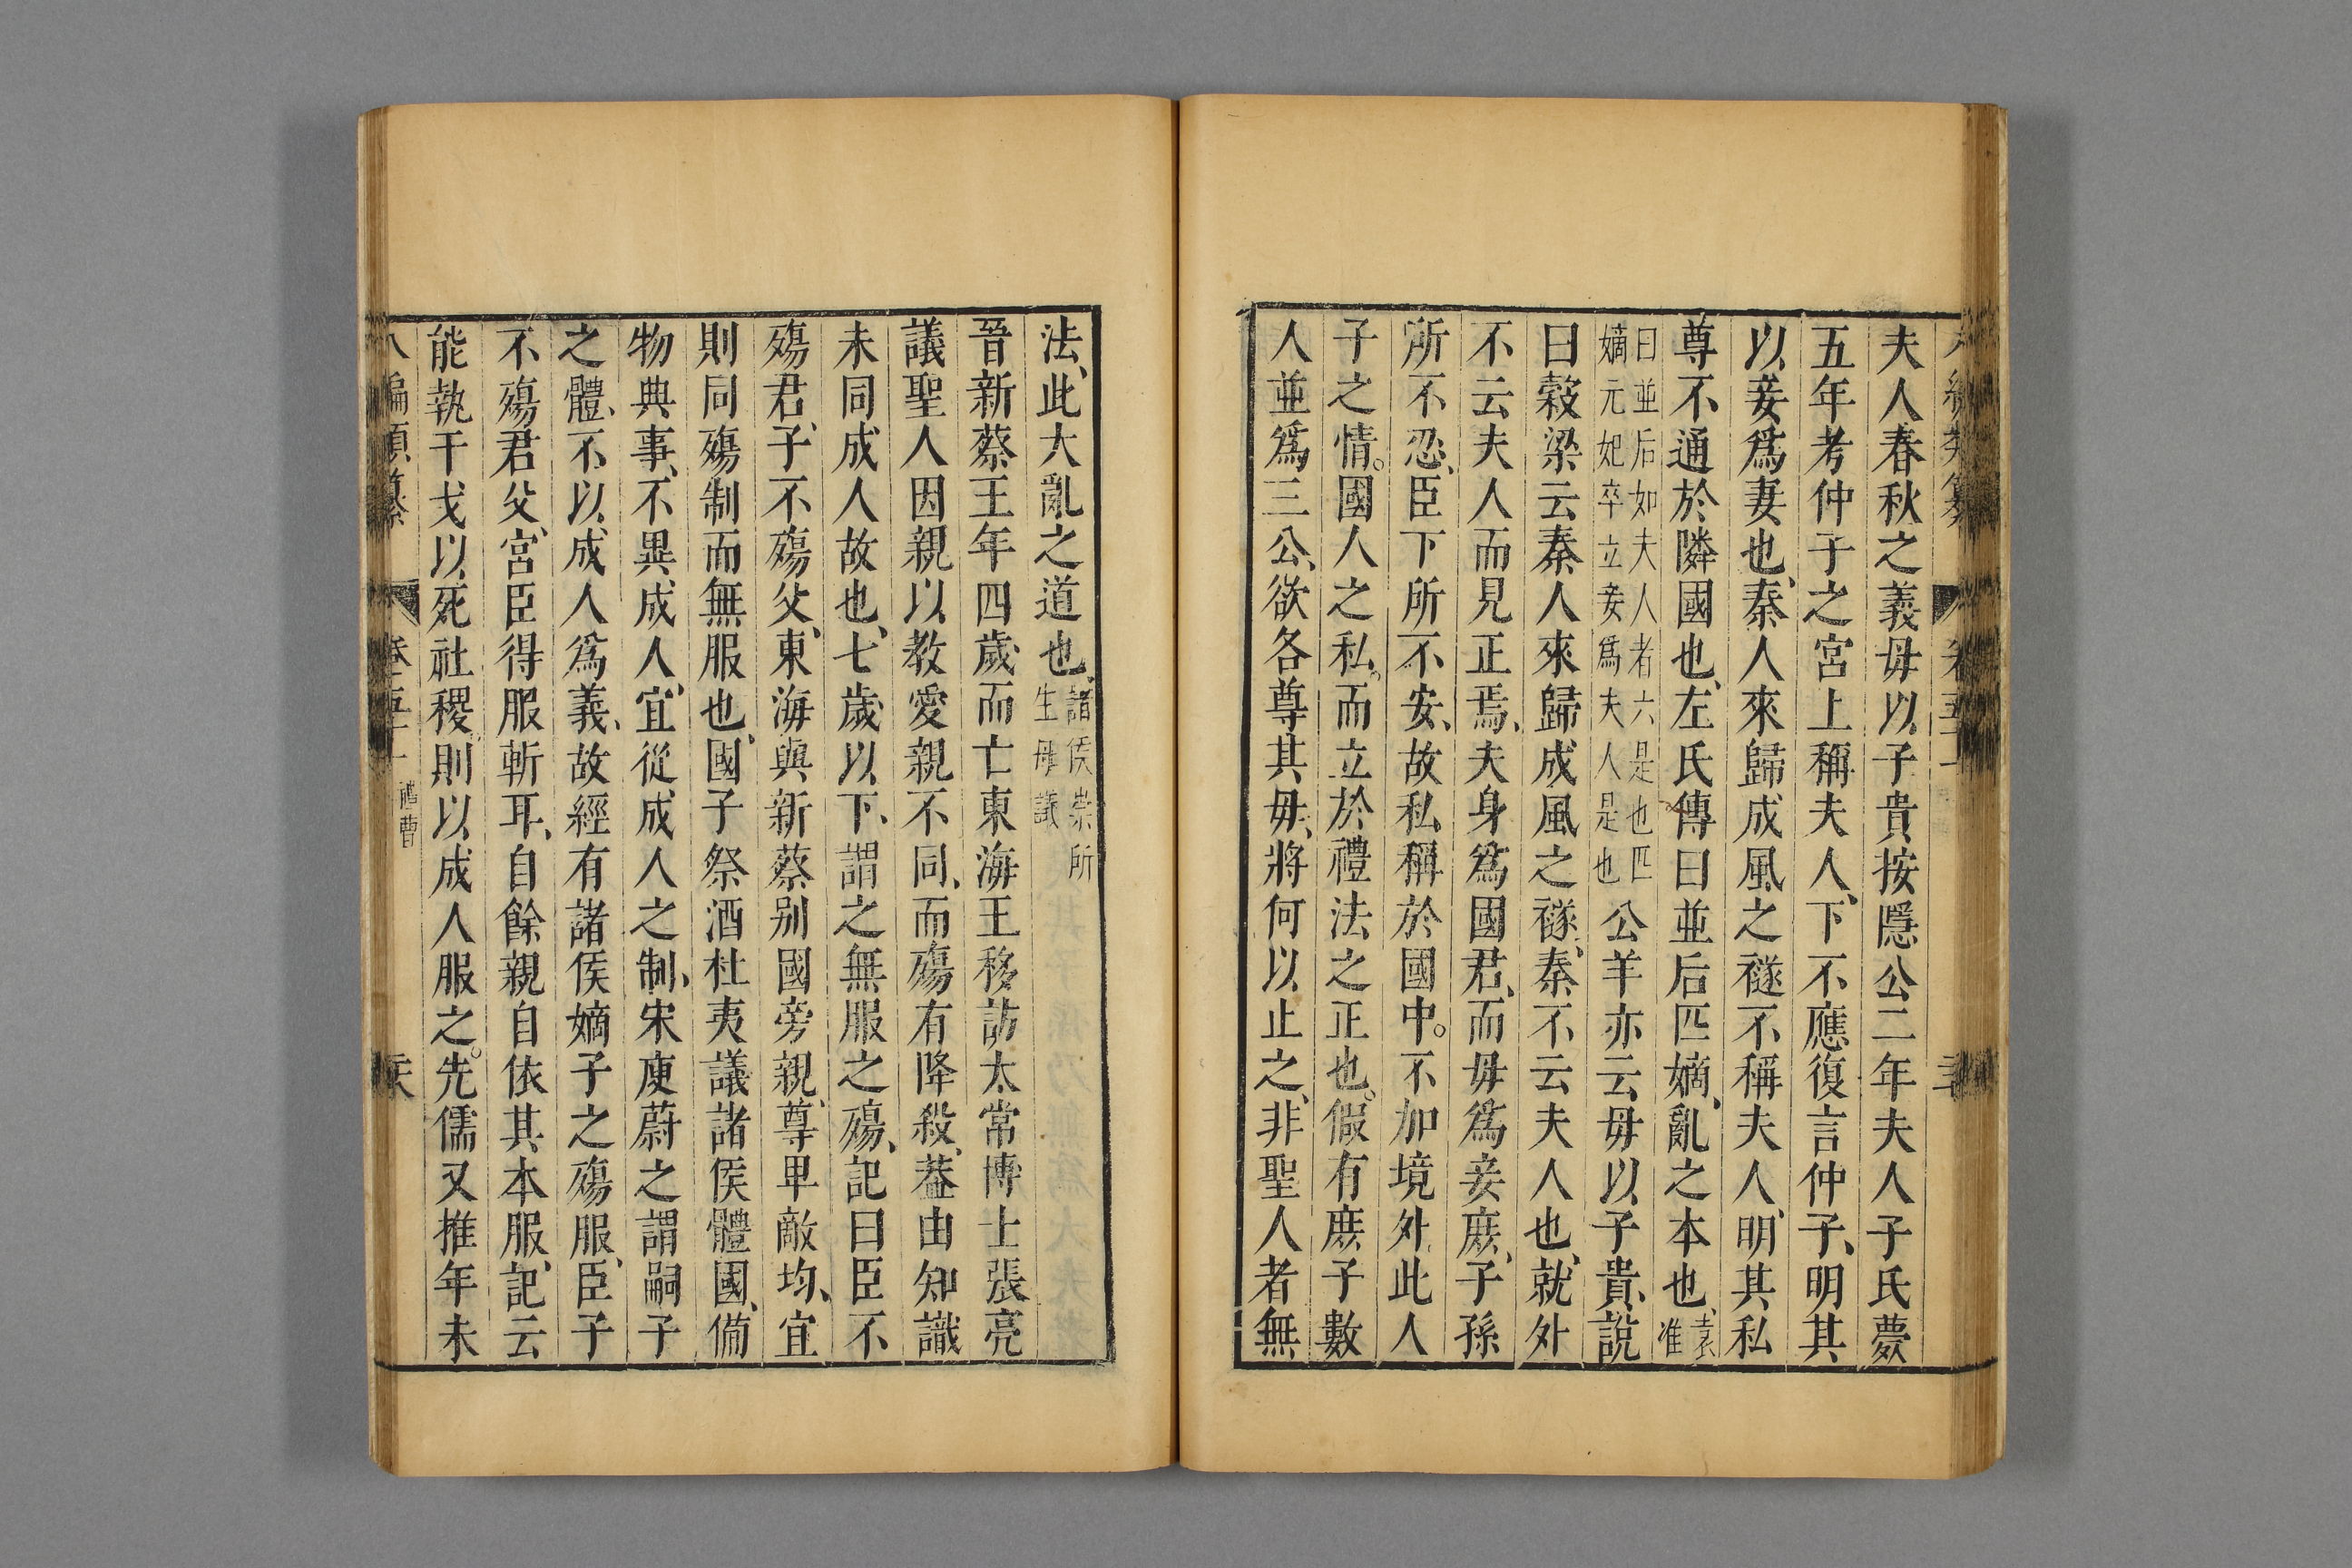 夫人春秋之義母以子貴按隱公二年夫人子氏薨
五年考仲子之宮上稱夫人、下不應復言仲子、明其
以妾爲妻也、秦人來歸成風之襚不稱夫人、明其私
尊不通於隣國也、左氏傳曰並后匹嫡、亂之本也、袁准
曰並后如夫人者六是也匹
嫡元妃卒立妾爲夫人是也
公羊亦云母以子貴、說
曰穀梁云秦人來歸成風之襚、秦不云夫人也、就外
不云夫人而見正焉、夫身爲國君、而母爲妾庶、子孫
所不忍、臣下所不安、故私稱於國中。不加境外此人
子之情。國人之私。而立於禮法之正也。假有庶子數
人並爲三公、欲各尊其母、將何以止之、非聖人者無
法、此大亂之道也、諸侯崇所
生母議
晉新蔡王年四歲而亡東海王移訪太常博士張亮
議聖人因親以教愛親不同、而殤有降殺、葢由知識
未同成人故也、七歲以下、謂之無服之殤、記曰臣不
殤君、子不殤父、東海與新蔡别國旁親、尊卑敵均、宜
則同殤制而無服也、國子祭酒杜夷議諸侯體國、備
物典事、不異成人、宜從成人之制、宋庾蔚之謂嗣子
之體、不以成人爲義、故經有諸侯嫡子之殤服、臣子
不殤君父、宮臣得服斬耳、自餘親自依其本服、記云
能執干戈以死社稷則以成人服之。先儒又推年未
八編類纂 卷五十一 禮曹